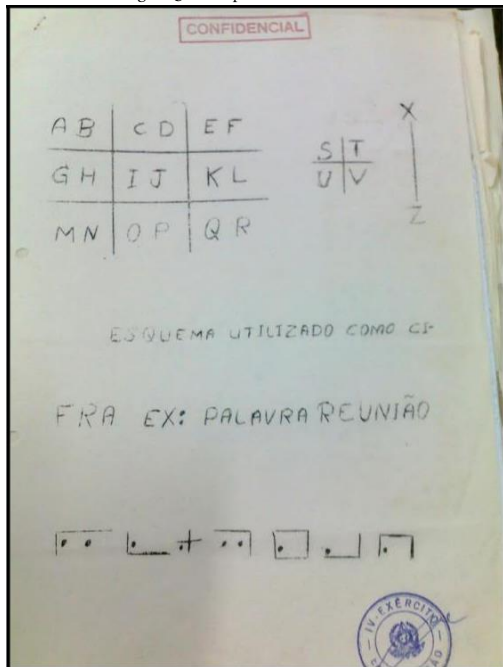 CONFIDENCIAL
AB CD EF
GH IJ KL
MN OP QR
S T
U V
X
Z
ESQUEMA UTILIZADO COMO CI-
FRA EX: PALAVRA REUNIÃO
IV-EXÉRCITO